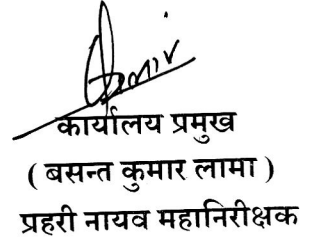 कार्यालय प्रमुख
( बसन्त कुमार लामा )
प्रहरी नायव महानिरीक्षक